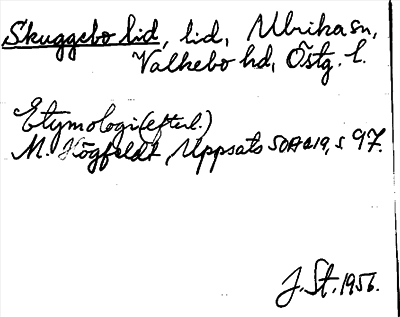 Skuggebo lid, lid, Ulrika sn,
Valkebo hd, Östg. l.
Etymologi (efterl.)
M. Högfeldt, Uppsats SOA 219, s 97.
J. St. 1956.